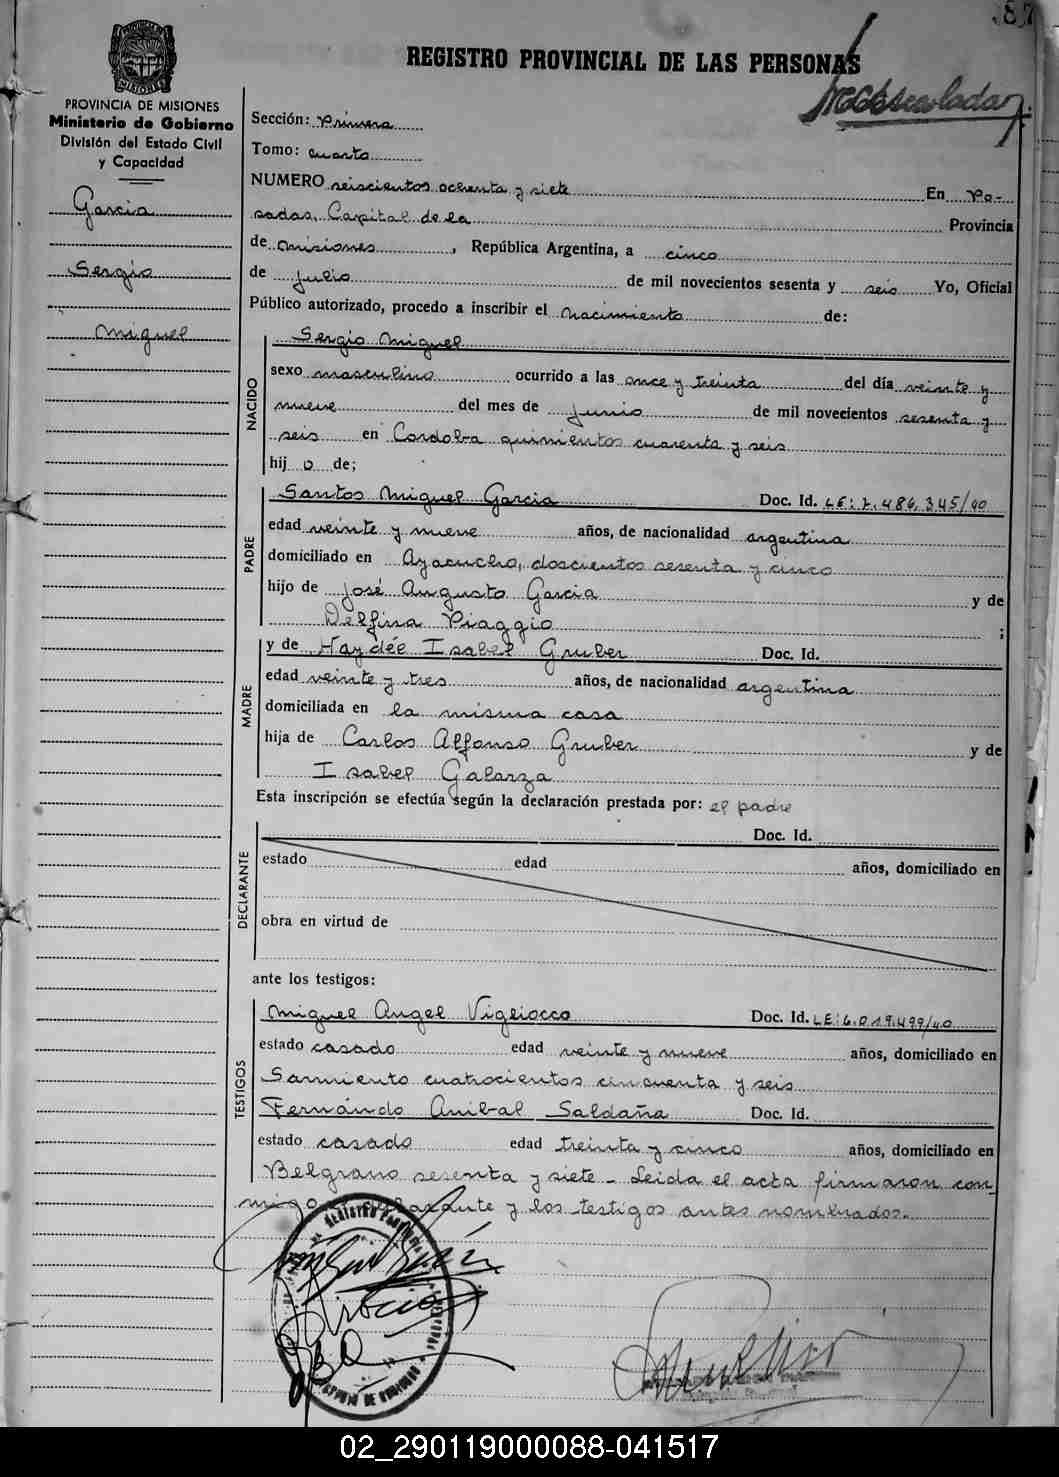 87
REGISTRO PROVINCIAL DE LAS PERSONAS
PROVINCIA DE MISIONES
Ministerio de Gobierno
División del Estado Civil
y Capacidad
Garcia
Sergio
Miguel
Sección: Primera
Tomo: cuarto
NUMERO seiscientos ochenta y siete En Po-
sadas, Capital de la Provincia
de Misiones, República Argentina, a cinco
de Julio de mil novecientos sesenta y seis Yo, Oficial
Público autorizado, procedo a inscribir el nacimiento de:
NACIDO
Sergio Miguel
sexo masculino ocurrido a las once y treinta del día veinte y
nueve del mes de Junio de mil novecientos sesenta y
seis en Cordoba quinientos cuarenta y seis
hij o de;
PADRE
Santos Miguel Garcia Doc. Id. LE: 7.486.345/40
edad veinte y nueve años, de nacionalidad argentina
domiciliado en Ayacucho, doscientos sesenta y cinco
hijo de José Augusto Garcia y de
Delfina Piaggio ;
MADRE
y de Haydée Isabel Gruber Doc. Id.
edad veinte y tres años, de nacionalidad argentina
domiciliada en la misma casa
hija de Carlos Alfonso Gruber y de
Isabel Galarza
Esta inscripción se efectúa según la declaración prestada por: el padre
DECLARANTE
Doc. Id.
estado edad años, domiciliado en
obra en virtud de
ante los testigos:
TESTIGOS
Miguel Angel Vigliocco Doc. Id. LE: 6.019.499/40
estado casado edad veinte y nueve años, domiciliado en
Sarmiento cuatrocientos cincuenta y seis
Fernándo Anibal Saldaña Doc. Id.
estado casado edad treinta y cinco años, domiciliado en
Belgrano sesenta y siete - Leida el acta firmaron con-
migo el declarante y los testigos antes nombrados.
02_290119000088-041517